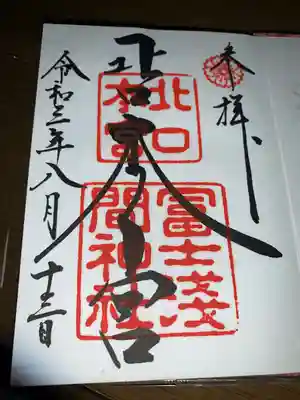 奉拝
北口本宮
北口
本宮
冨士淺
間神社
令和三年八月十三日